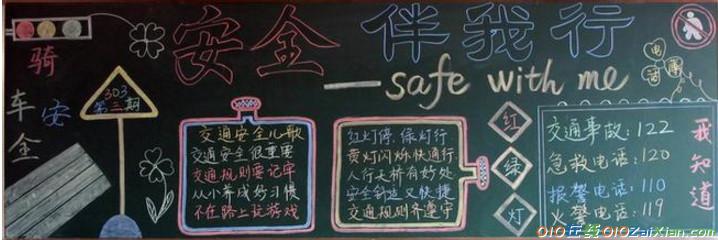 安全伴我行
—safe with me
骑车安全
303
第三期
交通安全儿歌
交通安全很重要
交通规则要记牢
从小养成好习惯
不在路上玩游戏
红灯停，绿灯行
黄灯闪烁快通行
人行天桥有好处
安全舒适又快捷
交通规则齐遵守
红
绿
灯
电话
交通事故：122
急救电话：120
报警电话：110
火警电话：119
我知道
010在线010ZaiXian.com